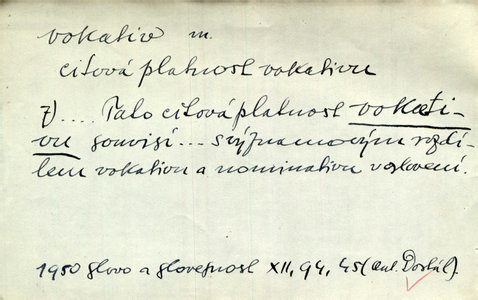 vokativ m.
citová platnost vokativu
7) .... Tato citová platnost vokati-
vu souvisí ... s významovým rozdí-
lem vokativu a nominativu v oslovení.
1950 Slovo a slovesnost XII, 94, 45 (Ant. Dostál).